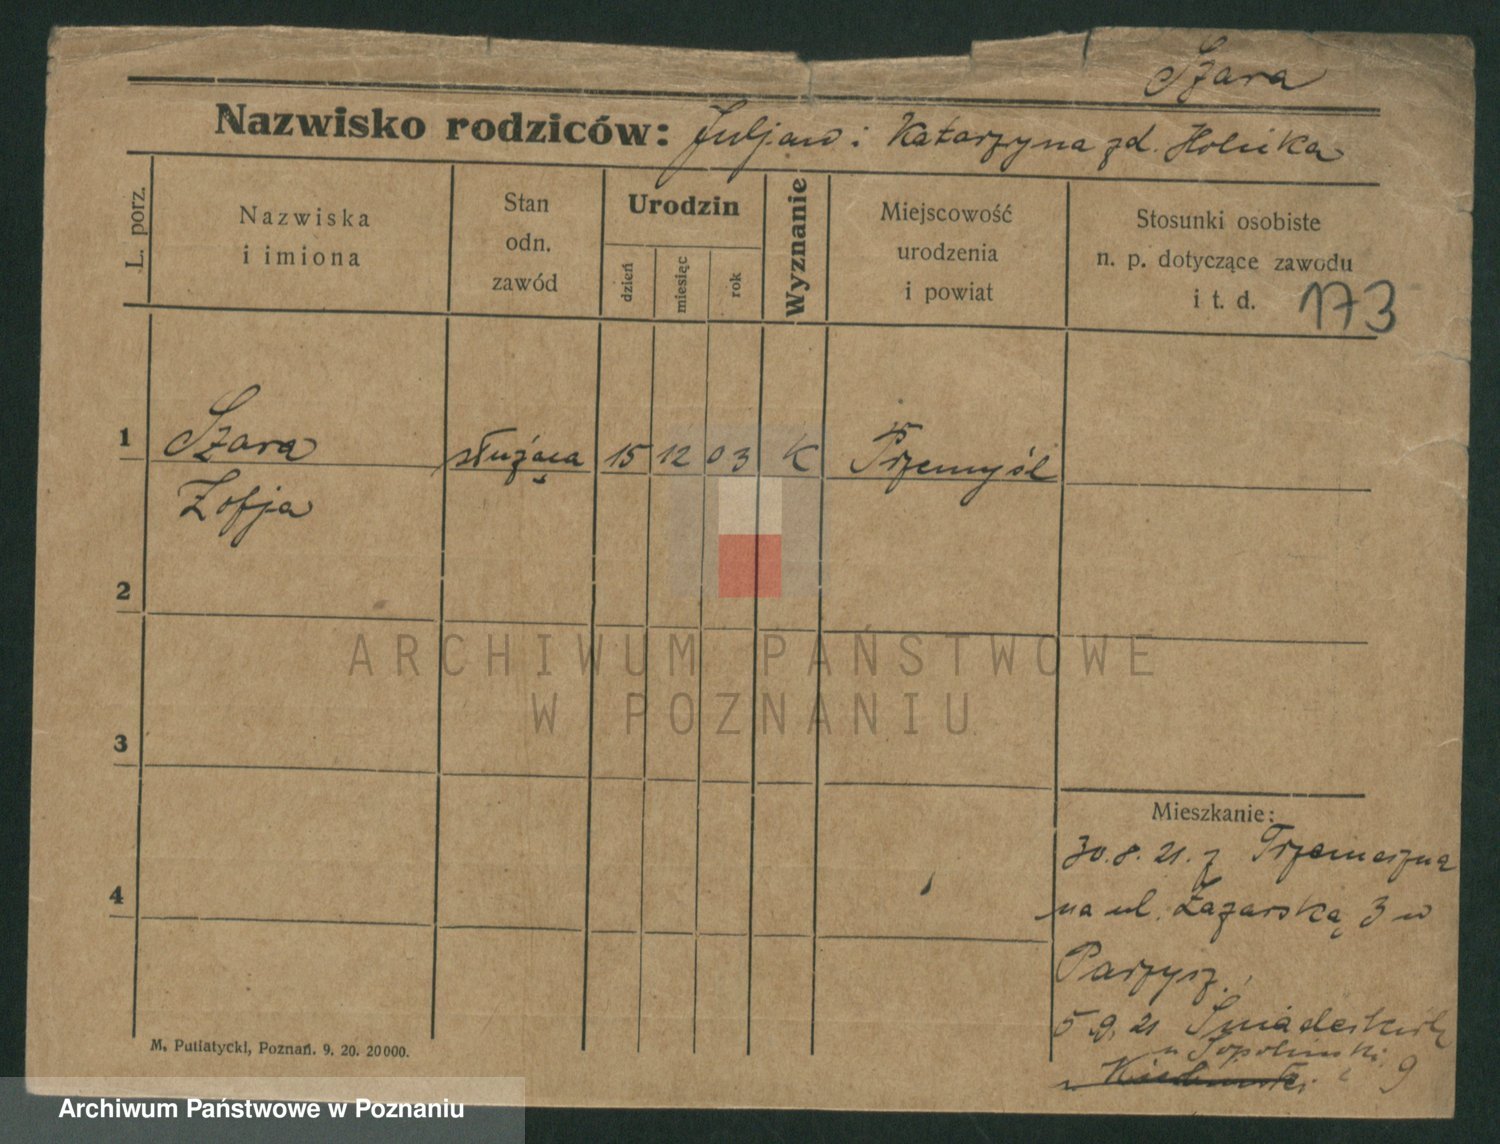 Szara
Nazwisko rodziców: Juljan i Katarzyna zd. Holicka
L. porz.
Nazwiska
i imiona
Stan
odn.
zawód
Urodzin
dzień
miesiąc
rok
Wyznanie
Miejscowość
urodzenia
i powiat
Stosunki osobiste
n. p. dotyczące zawodu
i t. d. 173
1 Szara służąca 15 12 03 K Przemyśl
Zofja
2
ARCHIWUM PAŃSTWOWE
W POZNANIU
3
Mieszkanie:
30.8.21. z Trzemeszna
4
na ul. Łazarską 3 u
Parzysz.
5.9.21 Śniadeckich
u 9
M. Putiatycki, Poznań. 9. 20. 20000.
Archiwum Państwowe w Poznaniu